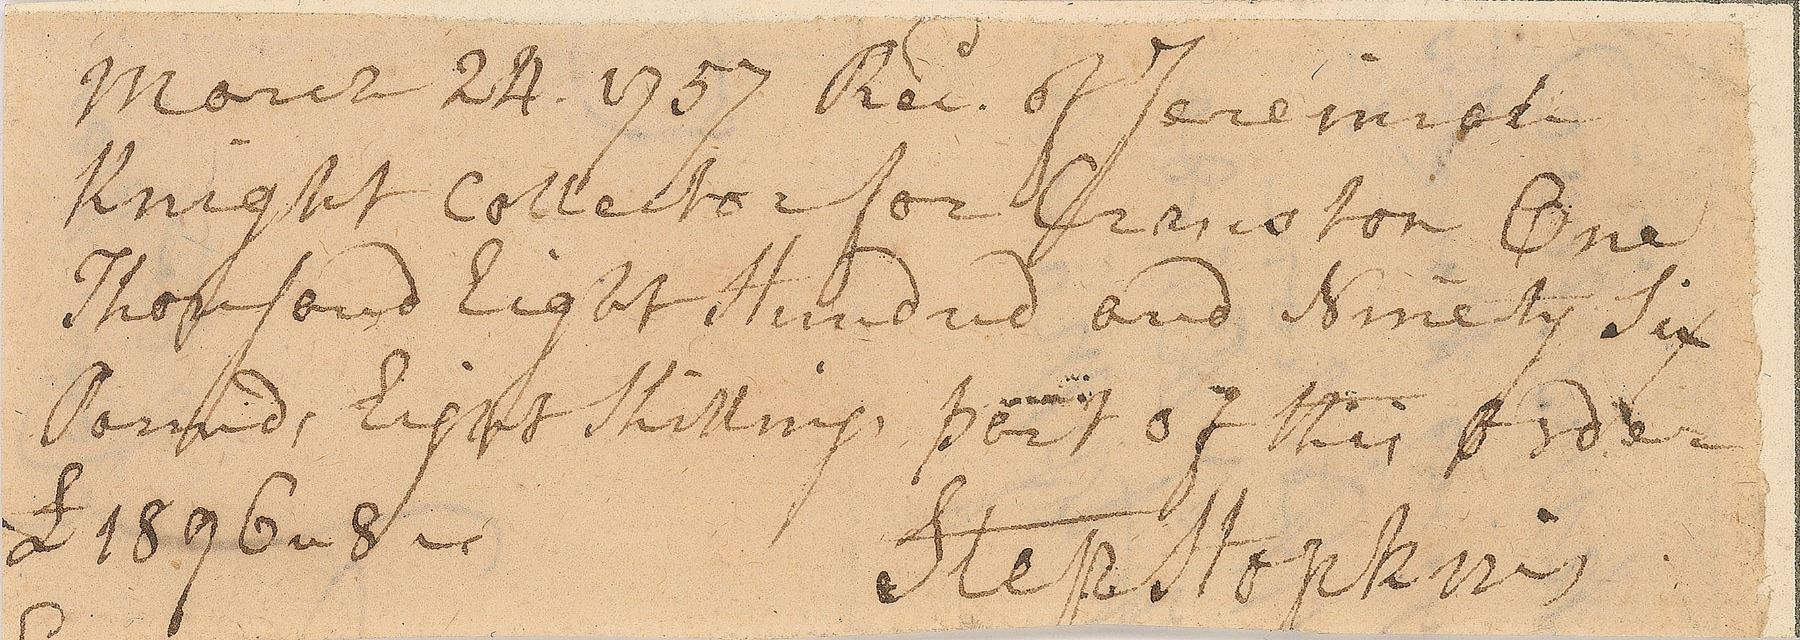 March 24. 1757 Rec'd. of Jeremiah
Knight Collector for Cranston One
Thousand Eight Hundred and Ninety Six
Pounds Eight Shillings part of this Order
£1896 8
Step Hopkins